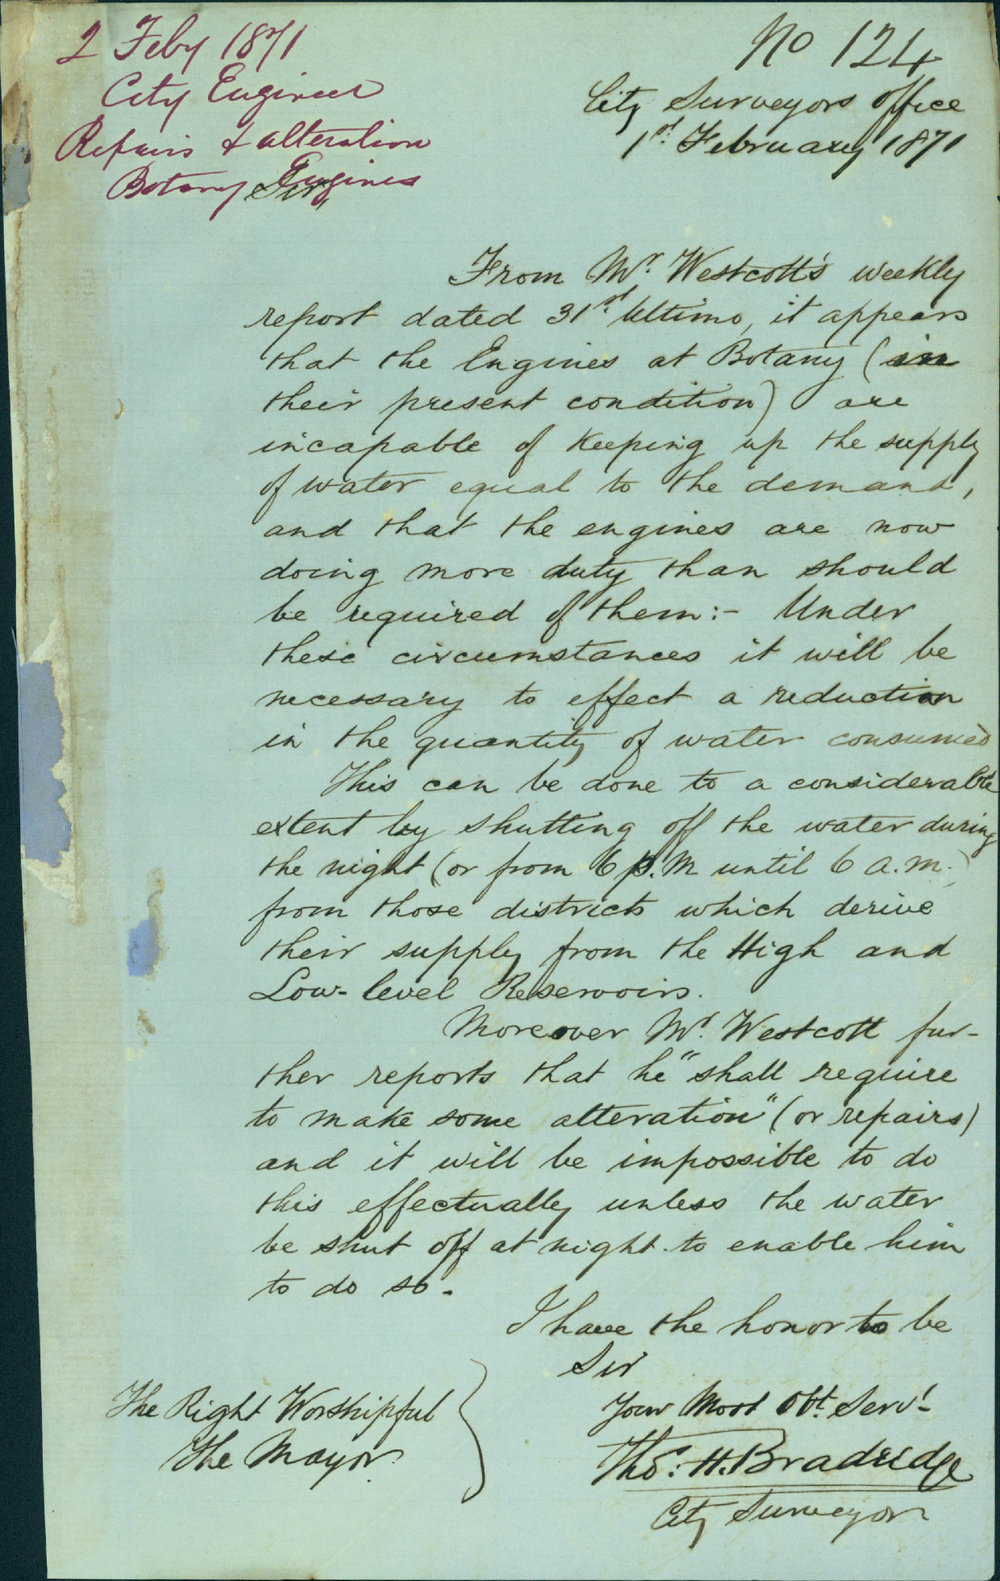 2 Feby 1871
City Engineer
Repairs & alteration
Botany Engines
No 124
City Surveyors Office
1st. February 1871
Sir,
From Mr. Westcott's weekly
report dated 31st. Ultimo, it appears
that the Engines at Botany (in
their present condition) are
incapable of keeping up the supply
of water equal to the demand,
and that the engines are now
doing more duty than should
be required of them:- Under
these circumstances it will be
necessary to effect a reduction
in the quantity of water consumed
This can be done to a considerable
extent by shutting off the water during
the night (or from 6 p.m until 6 a.m.)
from those districts which derive
their supply from the High and
Low-level Reservoirs.
Moreover Mr. Westcott fur-
ther reports that he "shall require
to make some alteration" (or repairs)
and it will be impossible to do
this effectually unless the water
be shut off at night to enable him
to do so.
I have the honor to be
Sir
Your Most Obt. Servt
Thos. H. Bradridge
City Surveyor
The Right Worshipful
The Mayor